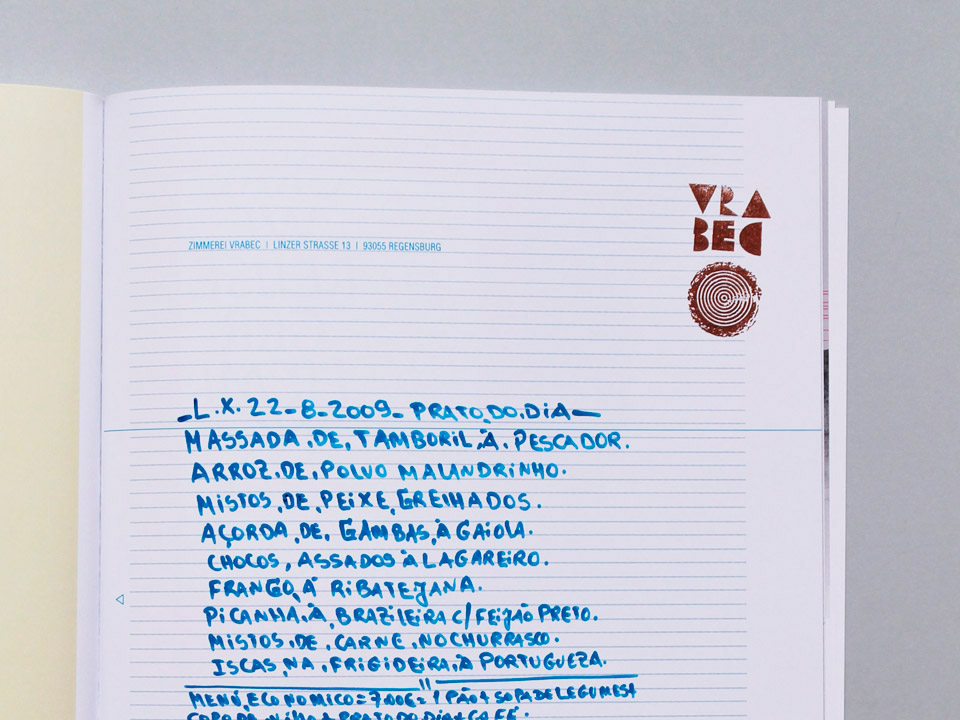 VRA
BEC
ZIMMEREI VRABEC | LINZER STRASSE 13 | 93055 REGENSBURG
-L.X. 22-8-2009- PRATO.DO.DIA-
MASSADA.DE.TAMBORIL.À.PESCADOR.
ARROZ.DE.POLVO MALANDRINHO.
MISTOS.DE.PEIXE.GRELHADOS.
AÇORDA.DE.GAMBAS.À GAIOLA.
CHOCOS, ASSADOS À LAGAREIRO.
FRANGO,À RIBATEJANA.
PICANHA.À.BRAZILEIRA C/FEIJÃO PRETO.
MISTOS.DE.CARNE.NO CHURRASCO.
ISCAS,NA.FRIGIDEIRA.À PORTUGUEZA.
MENÚ,ECONOMICO=7,00€="1 PÃO+SOPA DE LEGUMES+
COPO DE VINHO+PRATO DO DIA+CAFÉ.